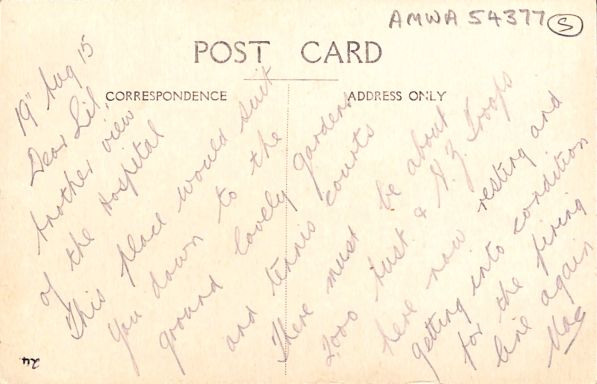 AMWA 54377 S
POST CARD
CORRESPONDENCE
ADDRESS ONLY
19" Aug 15
Dear Lil,
Another view
of the Hospital
This place would suit
you down to the
ground lovely gardens
and tennis courts
There must be about
2000 Aust & N.Z. Troops
here now resting and
getting into condition
for the firing
line again
Mac
24